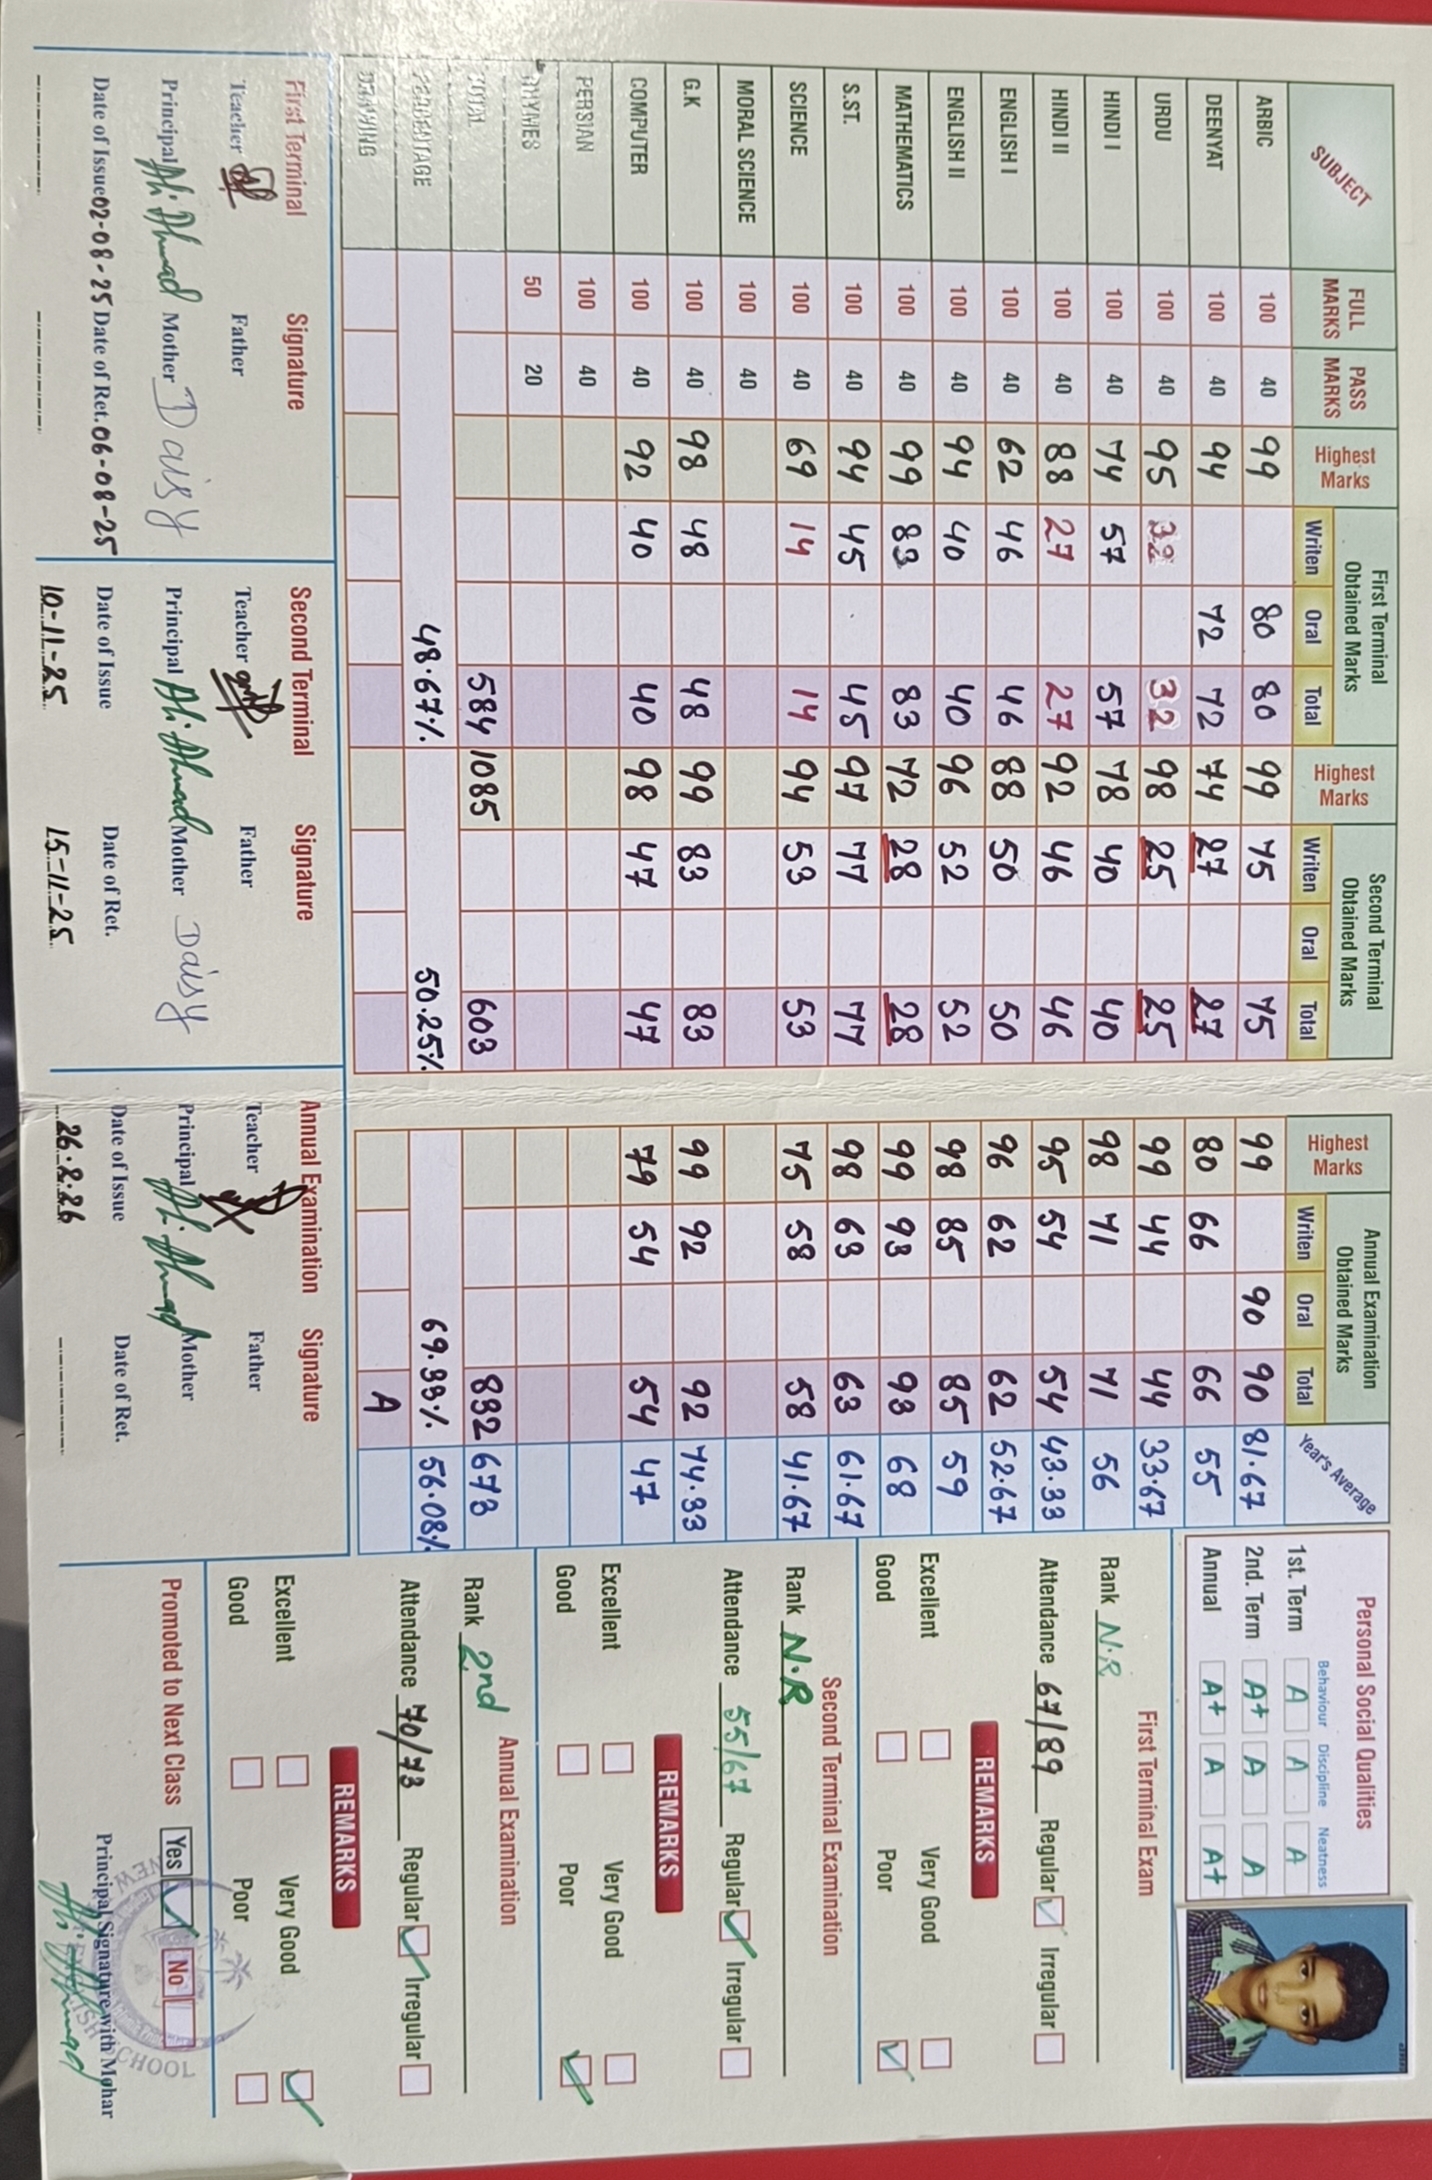 SUBJECT FULL MARKS PASS MARKS Highest Marks First Terminal Obtained Marks Writen Oral Total Highest Marks Second Terminal Obtained Marks Writen Oral Total Highest Marks Annual Examination Obtained Marks Writen Oral Total Year's Average
ARBIC 100 40 99 80 80 99 75 75 99 90 90 81.67
DEENYAT 100 40 94 72 72 74 27 27 80 66 66 55
URDU 100 40 95 32 32 98 25 25 99 44 44 33.67
HINDI I 100 40 74 57 57 78 40 40 98 71 71 56
HINDI II 100 40 88 27 27 92 46 46 95 54 54 43.33
ENGLISH I 100 40 62 46 46 88 50 50 96 62 62 52.67
ENGLISH II 100 40 94 40 40 96 52 52 98 85 85 59
MATHEMATICS 100 40 99 83 83 72 28 28 99 93 93 68
S.ST. 100 40 94 45 45 97 77 77 98 63 63 61.67
SCIENCE 100 40 69 14 14 94 53 53 75 58 58 41.67
MORAL SCIENCE 100 40
G.K 100 40 98 48 48 99 83 83 99 92 92 74.33
COMPUTER 100 40 92 40 40 98 47 47 79 54 54 47
PERSIAN 100 40
RHYMES 50 20
TOTAL 584 1085 603 832 673
PERCENTAGE 48.67% 50.25% 69.33% 56.08%
DRAWING A
First Terminal Signature
Teacher Father
Principal Ali Ahmad Mother Daisy
Date of Issue 02-08-25 Date of Ret. 06-08-25
Second Terminal Signature
Teacher Father
Principal Ali Ahmad Mother Daisy
Date of Issue Date of Ret.
10-11-25 15-11-25
Annual Examination Signature
Teacher Father
Principal Ali Ahmad Mother
Date of Issue Date of Ret.
26.2.26
Personal Social Qualities
Behaviour Discipline Neatness
1st. Term A A A
2nd. Term A+ A A
Annual A+ A A+
First Terminal Exam
Rank N.R
Attendance 67/89 Regular Irregular
REMARKS
Excellent Very Good
Good Poor
Second Terminal Examination
Rank N.R
Attendance 55/67 Regular Irregular
REMARKS
Excellent Very Good
Good Poor
Annual Examination
Rank 2nd
Attendance 70/73 Regular Irregular
REMARKS
Excellent Very Good
Good Poor
Promoted to Next Class Yes No
Principal Signature with Mohar
Ali Ahmad
NEW
SCHOOL